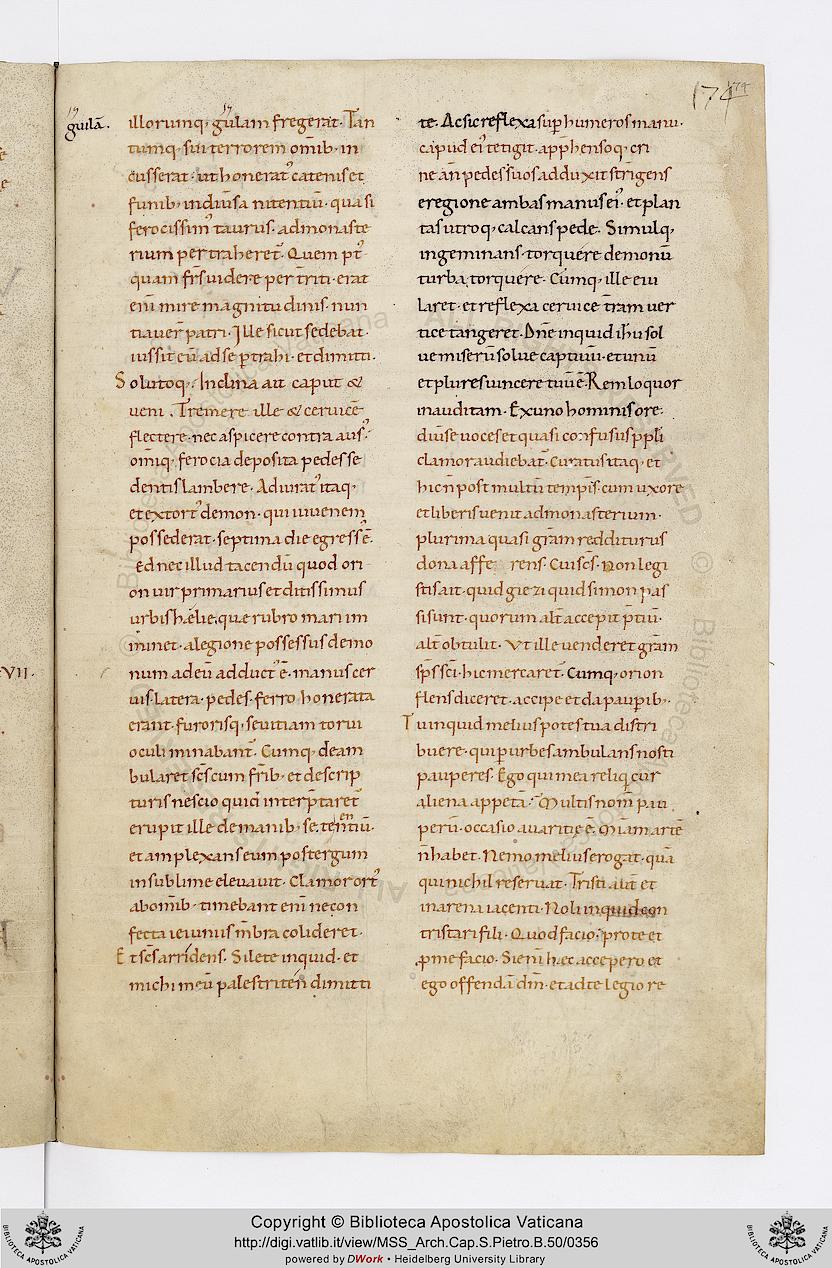 174 174
guilā.
illorumq; gulam fregerat. Tan
tumq; sui terrorem om̄ib; in
cusserat. ut honerat᾽ catenis et
funib; in diuersa nitentiū. quasi
ferocissim᾽ taurus. ad monaste
rium pertraheret̄. Quem p̄t᾽
quam fr̄s uidere perter̄riti. erat
eni᷎ mire magnitudinis. nun
tiauer̄ patri. Ille sicut sedebat.
iussit eū ad se p̱trahi. et dimitti.
Solutoq; Inclina ait caput &
ueni. Tremere ille & ceruicē
flectere. nec aspicere contra aus᾽.
om̄iq; ferocia deposita pedes se
dentis lambere. Adiurat᾽ itaq;
et extort᾽ demon. qui iuuenem
possederat. septima die egress᾽ ē.
ed nec illud tacendū quod ori
on uir primarius et ditissimus
urbis haelie. que rubro mari im
minet. a legione possessus demo
num ad eū adduct᾽ ē. manus cer
uis. latera. pedes. ferro honerata
erant. furorisq; seuitiam torui
oculi minabant̄. Cumq; deam
bularet sc̄s cum fr̄ib; et de scrip
turis nescio quid interp̄taret̄
erupit ille de manib; se tenentiū.
et amplexans eum post ergum
in sublime eleuauit. Clamor ort᾽
ab om̄ib; timebant eni᷎ ne con
fecta ieiuniis mēbra colideret.
Et sc̄s arridens. Silete inquid. et
michi meū palestriten dimitti
te. Ac sic reflexa sup̱ humeros manu.
caput ei᾽ tetigit. app̄hensoq; cri
ne an̄ pedes suos adduxit stringens
e regione ambas manus ei᾽. et plan
tas utroq; calcans pede. Simulq;
ingeminans. torquere demonū
turba. torquere. Cumq; ille eiu
laret. et reflexa ceruice ter̄ram uer
tice tangeret. Dn̄e inquid ih̄u sol
ue miserū solue captiuū. et unū
et plures uincere tuū ē. Rem loquor
inauditam. Ex uno hominis ore.
diuerse uoces et quasi confusus pp̄li
clamor audiebat̄. Curatus itaq; et
hic n̄ post multū temp̱is. cum uxore
et liberis uenit ad monasterium.
plurima quasi gr̄am redditurus
dona afferens. Cui sc̄s. Non legi
stis ait. quid giezi quid simon pas
si sunt. quorum alt̄ accepit p̄tiū.
alt̄ obtulit. Ut ille uenderet gr̄am
sp̄s sc̄i. hic mercaret̄. Cumq; orion
flens diceret. accipe et da paup̱ib;.
Tu inquid melius potes tua distri
buere. qui p̱ urbes ambulans nosti
pauperes. Ego qui mea reliqui cur
aliena appetā. Multis nom̄ pau
perū. occasio auaritie ē. Mīam arte
n̄ habet. Nemo melius erogat. quā
qui nichil reseruat. Tristi aut̄ et
in arena iacenti. Noli inquid con
tristari fili. Quod facio. pro te et
p̱ me facio. Si eni᷎ haec accepero et
ego offendā dm̄. et ad te legio re
VII.
Copyright © Biblioteca Apostolica Vaticana
http://digi.vatlib.it/view/MSS_Arch.Cap.S.Pietro.B.50/0356
powered by DWork • Heidelberg University Library